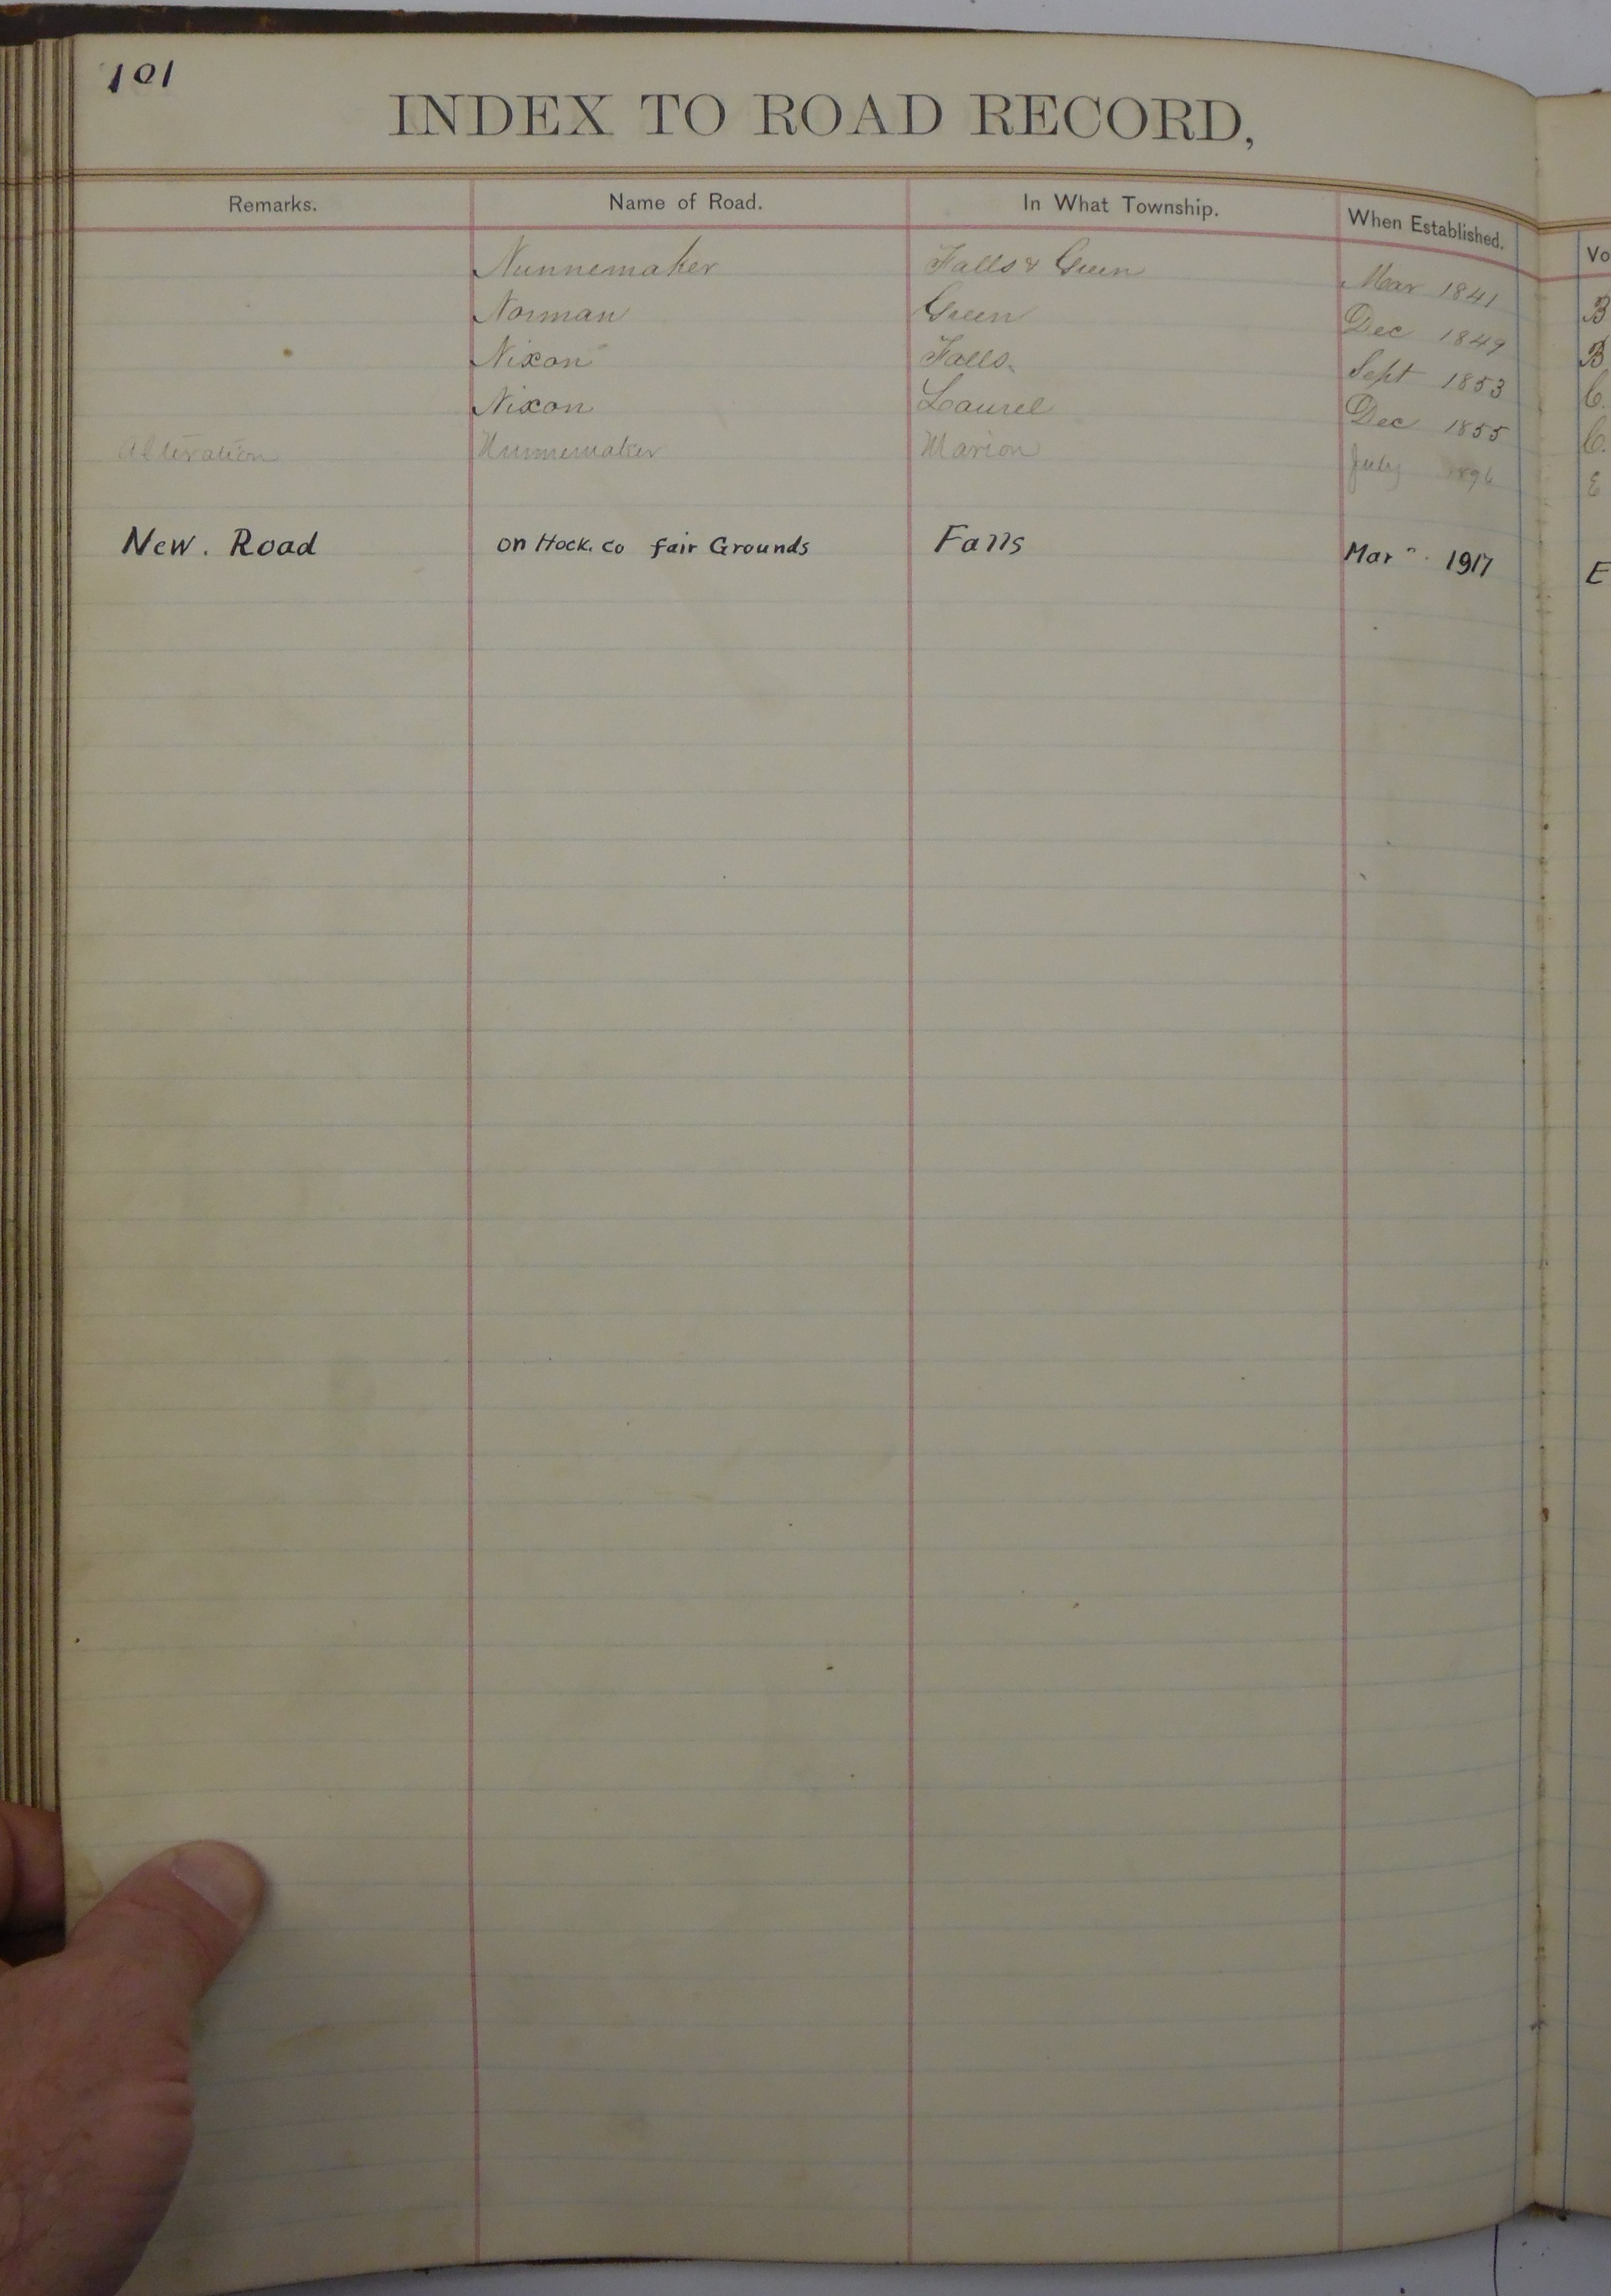 101
INDEX TO ROAD RECORD,
Remarks. Name of Road. In What Township. When Established. Vo
Nunnemaker Falls & Green Mar 1841 B
Norman Green Dec 1849 B
Nixon Falls. Sept 1853 C.
Nixon Laurel Dec 1855 C.
Alteration Nunnemaker Marion July 1896 E
New. Road on Hock. co fair Grounds Falls Mar 1917 E